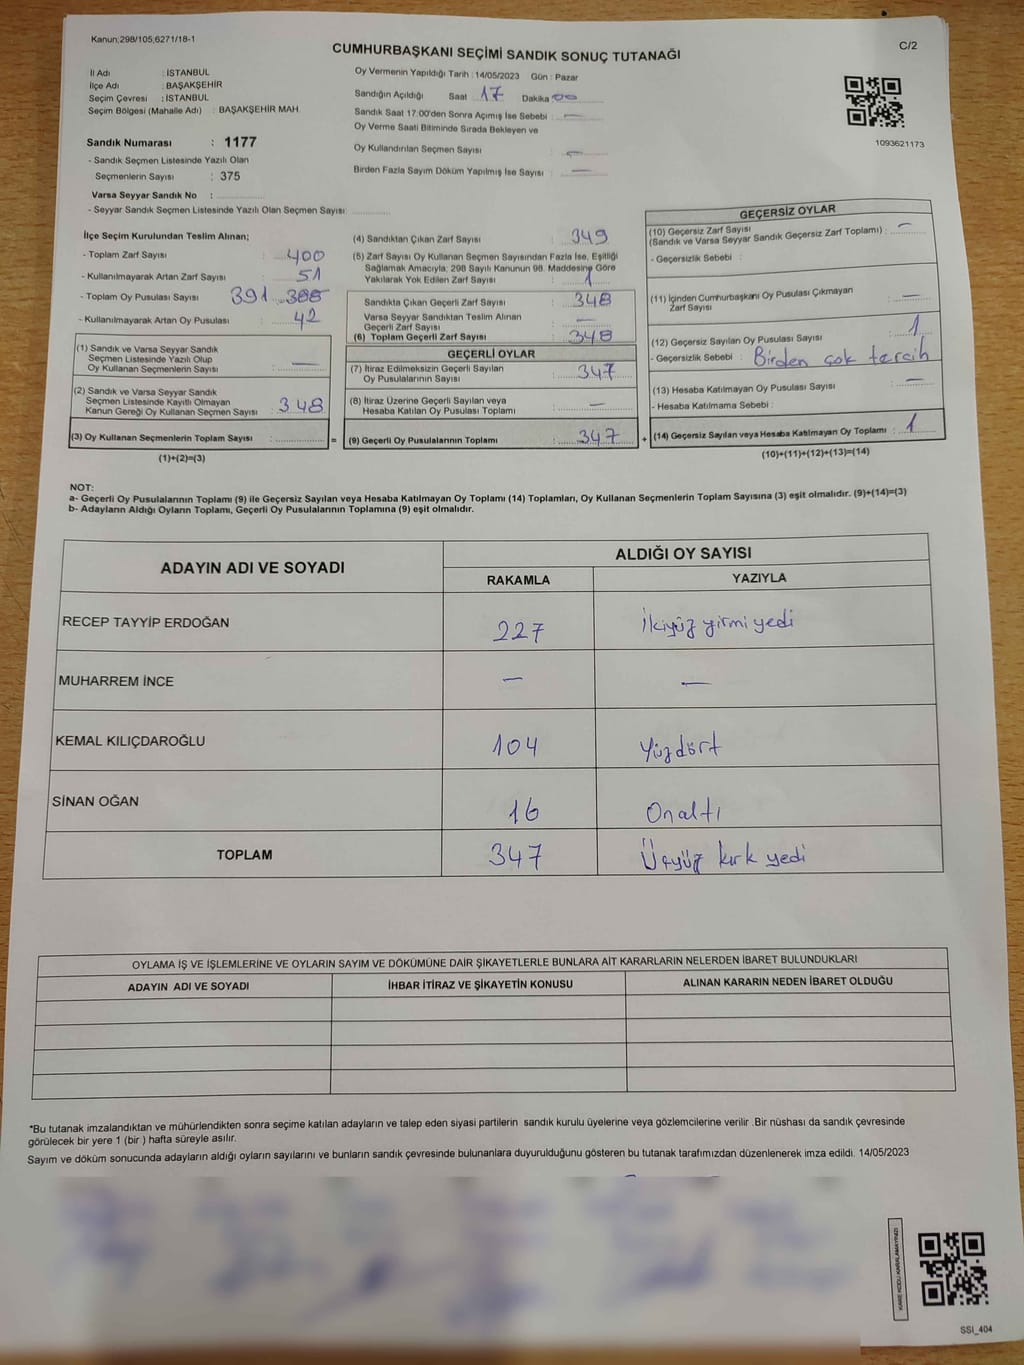 Kanun;298/105,6271/18-1
CUMHURBAŞKANI SEÇİMİ SANDIK SONUÇ TUTANAĞI
C/2
İl Adı : İSTANBUL
İlçe Adı : BAŞAKŞEHİR
Seçim Çevresi : İSTANBUL
Seçim Bölgesi (Mahalle Adı) : BAŞAKŞEHİR MAH.
Oy Vermenin Yapıldığı Tarih : 14/05/2023 Gün : Pazar
Sandığın Açıldığı Saat 17 Dakika 00
Sandık Saat 17:00'den Sonra Açımış İse Sebebi : —
Oy Verme Saati Bitiminde Sırada Bekleyen ve
Oy Kullandırılan Seçmen Sayısı : —
Birden Fazla Sayım Döküm Yapılmış İse Sayısı : —
1093621173
Sandık Numarası : 1177
- Sandık Seçmen Listesinde Yazılı Olan
Seçmenlerin Sayısı : 375
Varsa Seyyar Sandık No :
- Seyyar Sandık Seçmen Listesinde Yazılı Olan Seçmen Sayısı:
İlçe Seçim Kurulundan Teslim Alınan;
- Toplam Zarf Sayısı : 400
- Kullanılmayarak Artan Zarf Sayısı : 51
- Toplam Oy Pusulası Sayısı 391 388
- Kullanılmayarak Artan Oy Pusulası : 42
(1) Sandık ve Varsa Seyyar Sandık
Seçmen Listesinde Yazılı Olup
Oy Kullanan Seçmenlerin Sayısı : —
(2) Sandık ve Varsa Seyyar Sandık
Seçmen Listesinde Kayıtlı Olmayan
Kanun Gereği Oy Kullanan Seçmen Sayısı : 348
(3) Oy Kullanan Seçmenlerin Toplam Sayısı : =
(1)+(2)=(3)
(4) Sandıktan Çıkan Zarf Sayısı : 349
(5) Zarf Sayısı Oy Kullanan Seçmen Sayısından Fazla İse, Eşitliği
Sağlamak Amacıyla; 298 Sayılı Kanunun 98. Maddesine Göre
Yakılarak Yok Edilen Zarf Sayısı : 1
Sandıkta Çıkan Geçerli Zarf Sayısı : 348
Varsa Seyyar Sandıktan Teslim Alınan
Geçerli Zarf Sayısı : —
(6) Toplam Geçerli Zarf Sayısı : 348
GEÇERLİ OYLAR
(7) İtiraz Edilmeksizin Geçerli Sayılan
Oy Pusulalarının Sayısı : 347
(8) İtiraz Üzerine Geçerli Sayılan veya
Hesaba Katılan Oy Pusulası Toplamı : —
(9) Geçerli Oy Pusulalarının Toplamı : 347 +
GEÇERSİZ OYLAR
(10) Geçersiz Zarf Sayısı
(Sandık ve Varsa Seyyar Sandık Geçersiz Zarf Toplamı) : —
- Geçersizlik Sebebi :
(11) İçinden Cumhurbaşkanı Oy Pusulası Çıkmayan
Zarf Sayısı : —
(12) Geçersiz Sayılan Oy Pusulası Sayısı : 1
- Geçersizlik Sebebi : Birden çok tercih
(13) Hesaba Katılmayan Oy Pusulası Sayısı : —
- Hesaba Katılmama Sebebi :
(14) Geçersiz Sayılan veya Hesaba Katılmayan Oy Toplamı : 1
(10)+(11)+(12)+(13)=(14)
NOT:
a- Geçerli Oy Pusulalarının Toplamı (9) ile Geçersiz Sayılan veya Hesaba Katılmayan Oy Toplamı (14) Toplamları, Oy Kullanan Seçmenlerin Toplam Sayısına (3) eşit olmalıdır. (9)+(14)=(3)
b- Adayların Aldığı Oyların Toplamı, Geçerli Oy Pusulalarının Toplamına (9) eşit olmalıdır.
ADAYIN ADI VE SOYADI
ALDIĞI OY SAYISI
RAKAMLA YAZIYLA
RECEP TAYYİP ERDOĞAN 227 İkiyüz yirmi yedi
MUHARREM İNCE — —
KEMAL KILIÇDAROĞLU 104 Yüzdört
SİNAN OĞAN 16 Onaltı
TOPLAM 347 Üçyüz kırk yedi
OYLAMA İŞ VE İŞLEMLERİNE VE OYLARIN SAYIM VE DÖKÜMÜNE DAİR ŞİKAYETLERLE BUNLARA AİT KARARLARIN NELERDEN İBARET BULUNDUKLARI
ADAYIN ADI VE SOYADI İHBAR İTİRAZ VE ŞİKAYETİN KONUSU ALINAN KARARIN NEDEN İBARET OLDUĞU
*Bu tutanak imzalandıktan ve mühürlendikten sonra seçime katılan adayların ve talep eden siyasi partilerin sandık kurulu üyelerine veya gözlemcilerine verilir .Bir nüshası da sandık çevresinde
görülecek bir yere 1 (bir ) hafta süreyle asılır.
Sayım ve döküm sonucunda adayların aldığı oyların sayılarını ve bunların sandık çevresinde bulunanlara duyurulduğunu gösteren bu tutanak tarafımızdan düzenlenerek imza edildi. 14/05/2023
KARE KODU KARALAMAYINIZ!
SSI_404